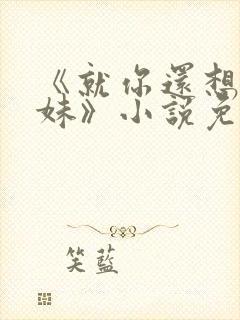 《就你還想
妹》小說免
笑藍